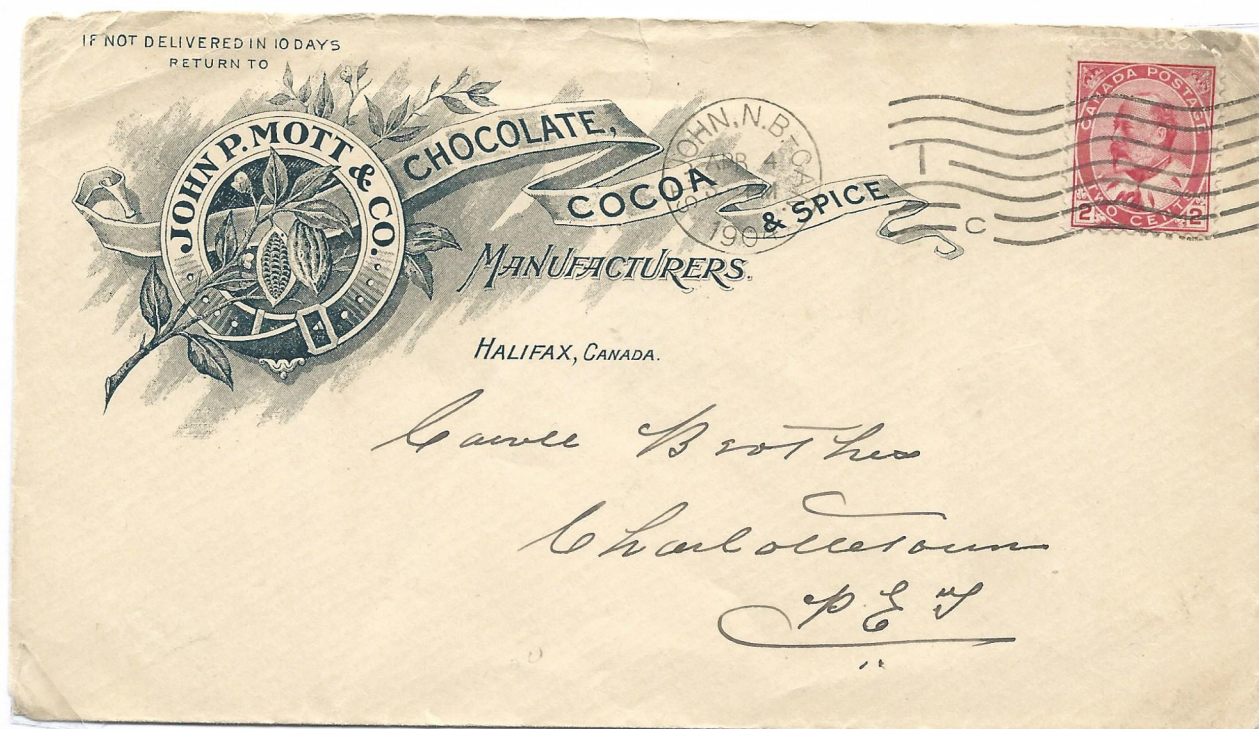 IF NOT DELIVERED IN 10 DAYS
RETURN TO
JOHN P. MOTT & CO.
CHOCOLATE,
COCOA
& SPICE
MANUFACTURERS.
HALIFAX, CANADA.
JOHN, N.B. CAN
APR 4
190
1
C
CANADA POSTAGE
2 TWO CENTS 2
Brothers
Charlottetown
P E I